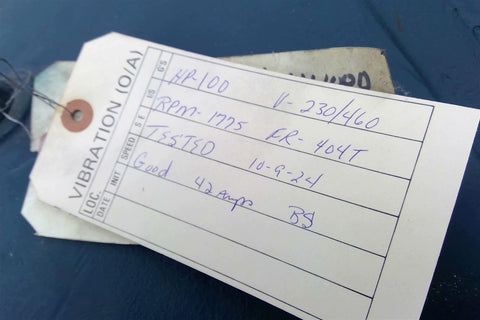 VIBRATION (O/A)
LOC.
DATE INIT SPEED S E IS G'S
HP-100 V-230/460
RPM-1775 FR-404T
TESTED 10-9-24
Good 42 Amps BS